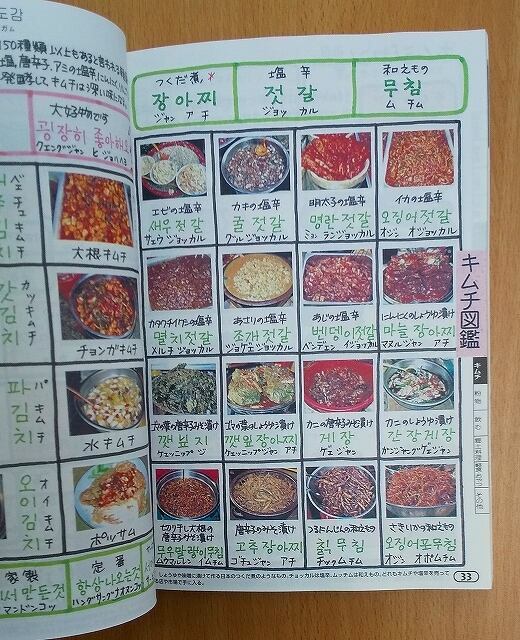 図鑑
ガム
150種類以上もあると言われる
塩,唐辛子,アミの塩辛,にんにく
発酵して,キムチは深い味に
大好物です
굉장히 좋아해요
クェングジャン ヒ ジョハヘヨ
大根キムチ
カッキムチ
갓김치
チョンガキムチ
パキムチ
파김치
水キムチ
オイキムチ
오이김치
ポッサム
家製
써 만든것
マンドンコッ
定番
항상 나오는것
ハングサーグナオヌンコッ
つくだ煮,
장아찌
ジャン ア チ
塩辛
젓갈
ジョッ カル
和えもの
무침
ム チム
エビの塩辛
새우젓갈
サェウ ジョッカル
カキの塩辛
굴젓갈
グル ジョッカル
明太子の塩辛
명란젓갈
ミョン ランジョッカル
イカの塩辛
오징어젓갈
オジン オジョッカル
カタクチイワシの塩辛
멸치젓갈
メルチ ジョッカル
あさりの塩辛
조개젓갈
ジョゲェ ジョッカル
あじの塩辛
벤뎅이젓갈
ベンデェン イジョッカル
にんにくのしょうゆ漬け
마늘장아찌
マヌルジャン ア チ
ゴマの葉の唐辛子みそ漬け
깬잎지
ケェッニップ ジ
ゴマの葉のしょうゆ漬け
깬잎장아찌
ケェッニップジャン ア チ
カニの唐辛子漬け
게장
ゲェ ジャン
カニのしょうゆ漬け
간장게장
カンジャングゲェジャン
切り干し大根の唐辛子みそ漬け
무우말랭이무침
ムウマルレン イムチム
唐辛子のみそ漬け
고추장아찌
ゴチュジャン ア チ
つるにんじんの和えもの
칡무침
チックムチム
さきいかの和えもの
오징어포무침
オジン オポムチム
キムチ図鑑
キムチ
粉物
飲む
郷土料理
軽食・おやつ
その他
しょうゆや味噌に漬けて作る日本のつくだ煮のようなもの。チョッカルは塩辛、ムッチムは和えもの。どれもキムチや塩辛を売って
る店や市場で手に入る。
33